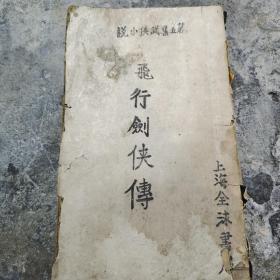 說小俠武集五第
飛行劍俠傳
上海全球書